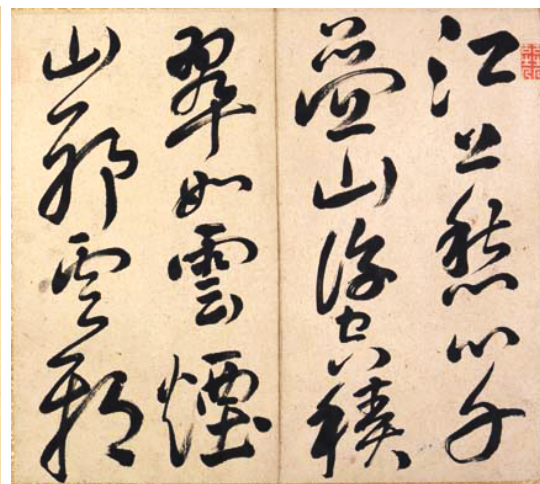 江上愁心千
疊山浮空積
翠如雲煙
山耶雲耶